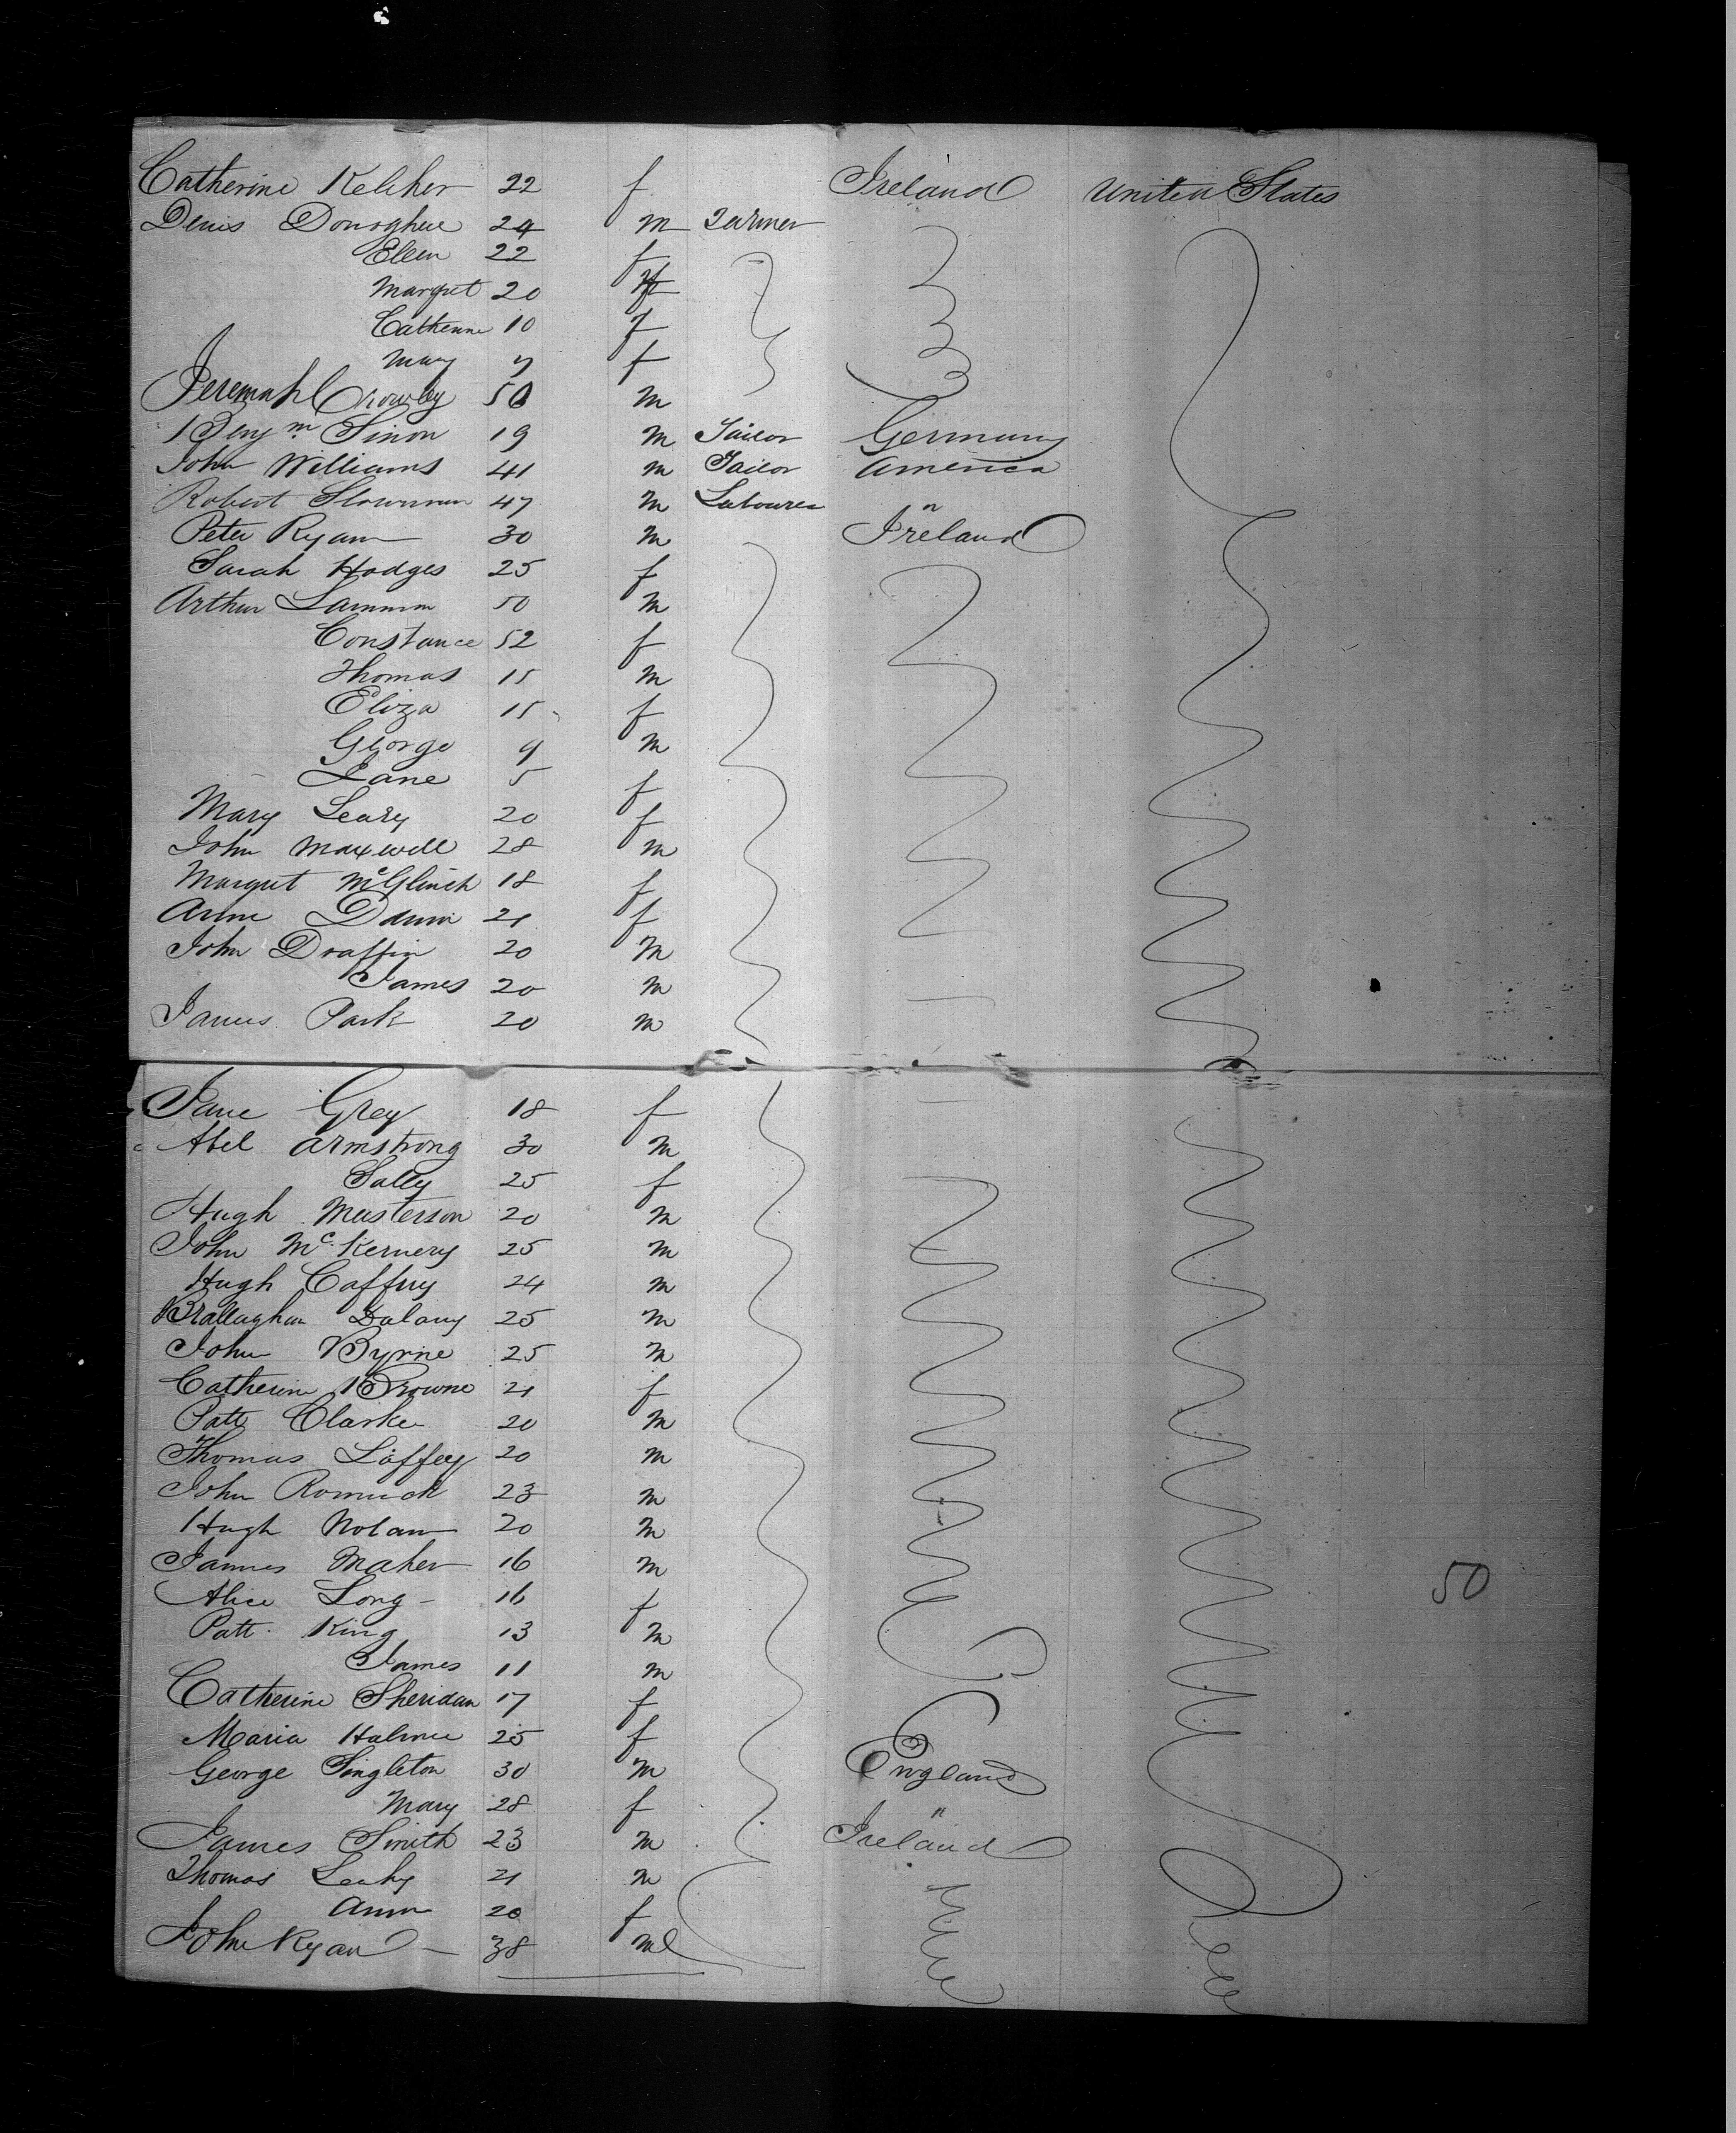 Catherine Keleher 22 f Ireland United States
Denis Donoghue 24 m Farmer
Ellen 22 f
Margret 20 f
Catherine 10 f
Mary 7 f
Jeremah Crowley 50 m
Benjm Simon 19 m Tailor Germany
John Williams 41 m Tailor America
Robert 47 m Labourer "
Peter Ryan 30 m Ireland
Sarah Hodges 25 f
Arthur 50 m
Constance 52 f
Thomas 15 m
Eliza 15 f
George 9 m
Jane 5 f
Mary Leary 20 f
John Maxwell 28 m
Margret McGlinch 18 f
Anne 21 f
John Draffin 20 m
James 20 m
James Park 20 m
Jane Grey 18 f
Abel Armstrong 30 m
Sally 25 f
Hugh Masterson 20 m
John McKernery 25 m
Hugh Caffrey 24 m
Dalany 25 m
John Byrne 25 m
Catherine Browne 21 f
Patt Clarke 20 m
Thomas Laffey 20 m
John 23 m
Hugh Nolan 20 m
James Maher 16 m
Alice Long - 16 f 50
Patt King 13 m
James 11 m
Catherine Sheridan 17 f
Maria 25 f
George Singleton 30 m England
Mary 28 f "
James Smith 23 m Ireland
Thomas Leahy 21 m
Ann 20 f
John Ryan - 38 m